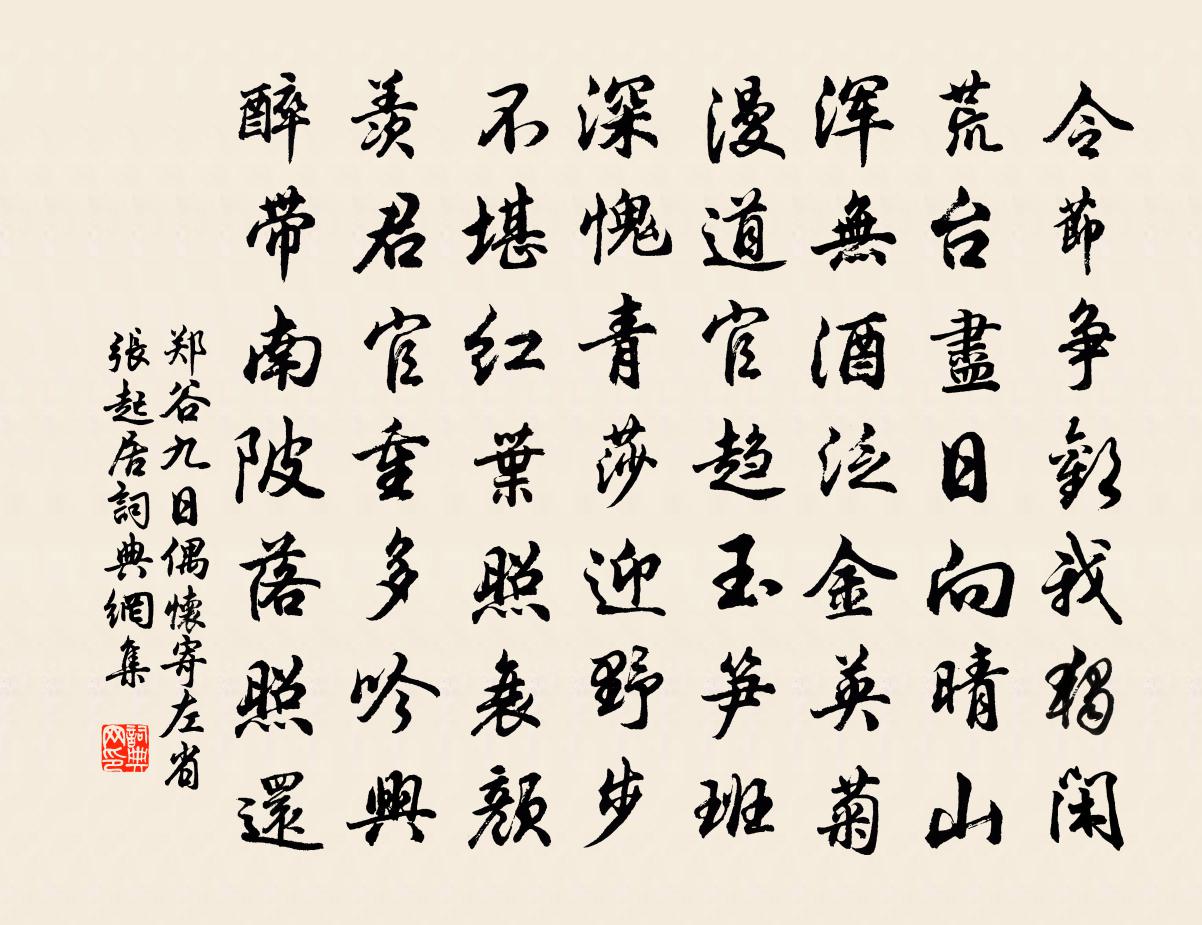 令節争歡我獨闲
荒台盡日向晴山
浑無酒泛金英菊
漫道官趋玉笋班
深愧青莎迎野步
不堪红葉照衰颜
羡君官重多吟興
醉带南陂落照還
郑谷九日偶懷寄左省
張起居詞典網集
詞典网印